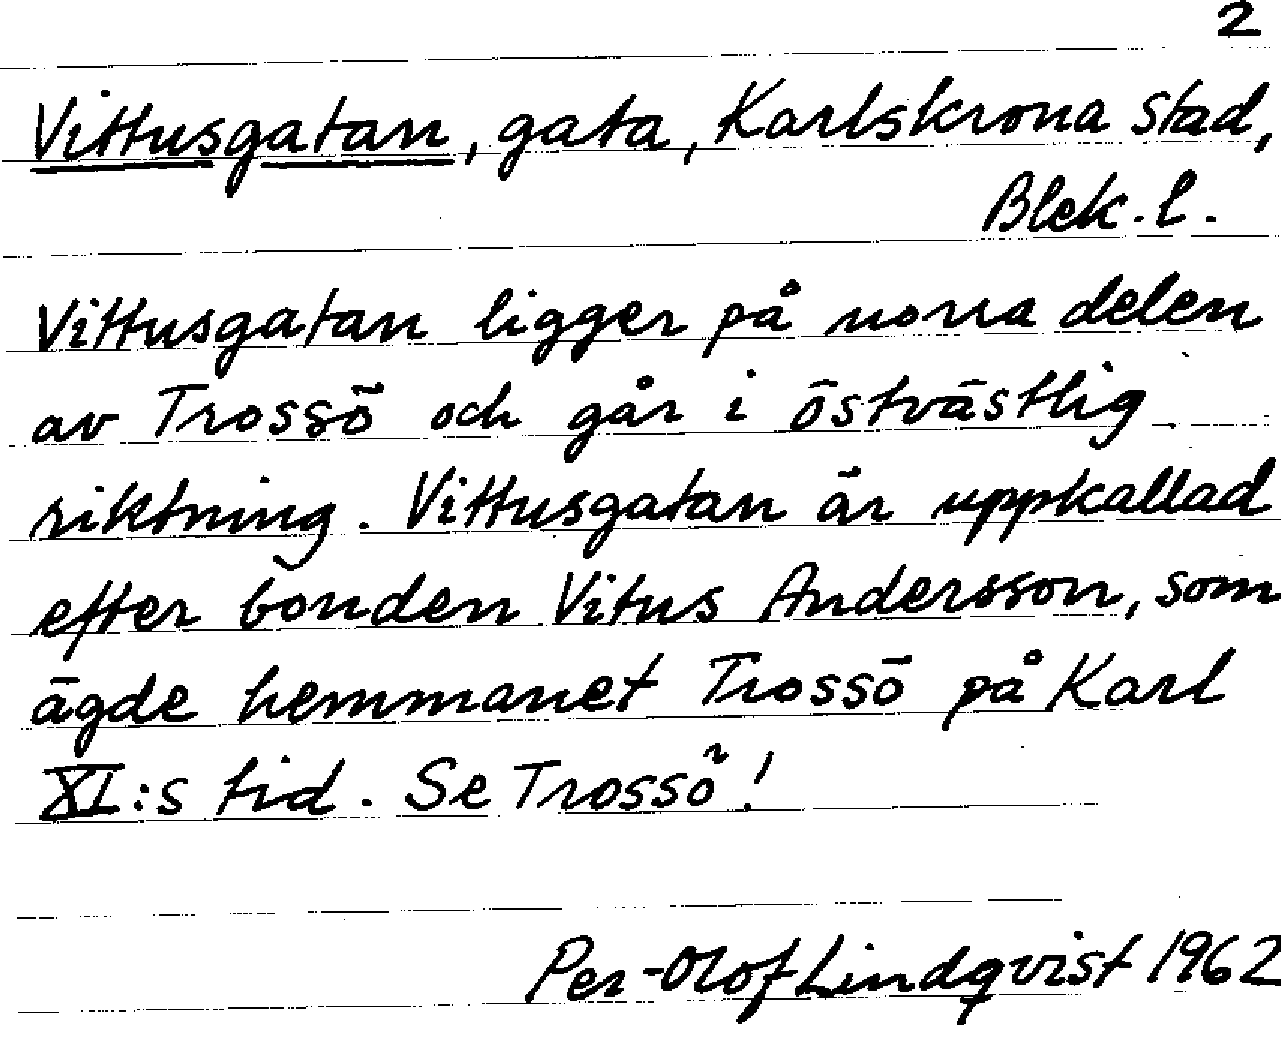 2
Vittusgatan, gata, Karlskrona stad,
Blek. l.
Vittusgatan ligger på norra delen
av Trossö och går i östvästlig
riktning. Vittusgatan är uppkallad
efter bonden Vitus Andersson, som
ägde hemmanet Trossö på Karl
XI:s tid. Se Trossö!
Per-Olof Lindqvist 1962